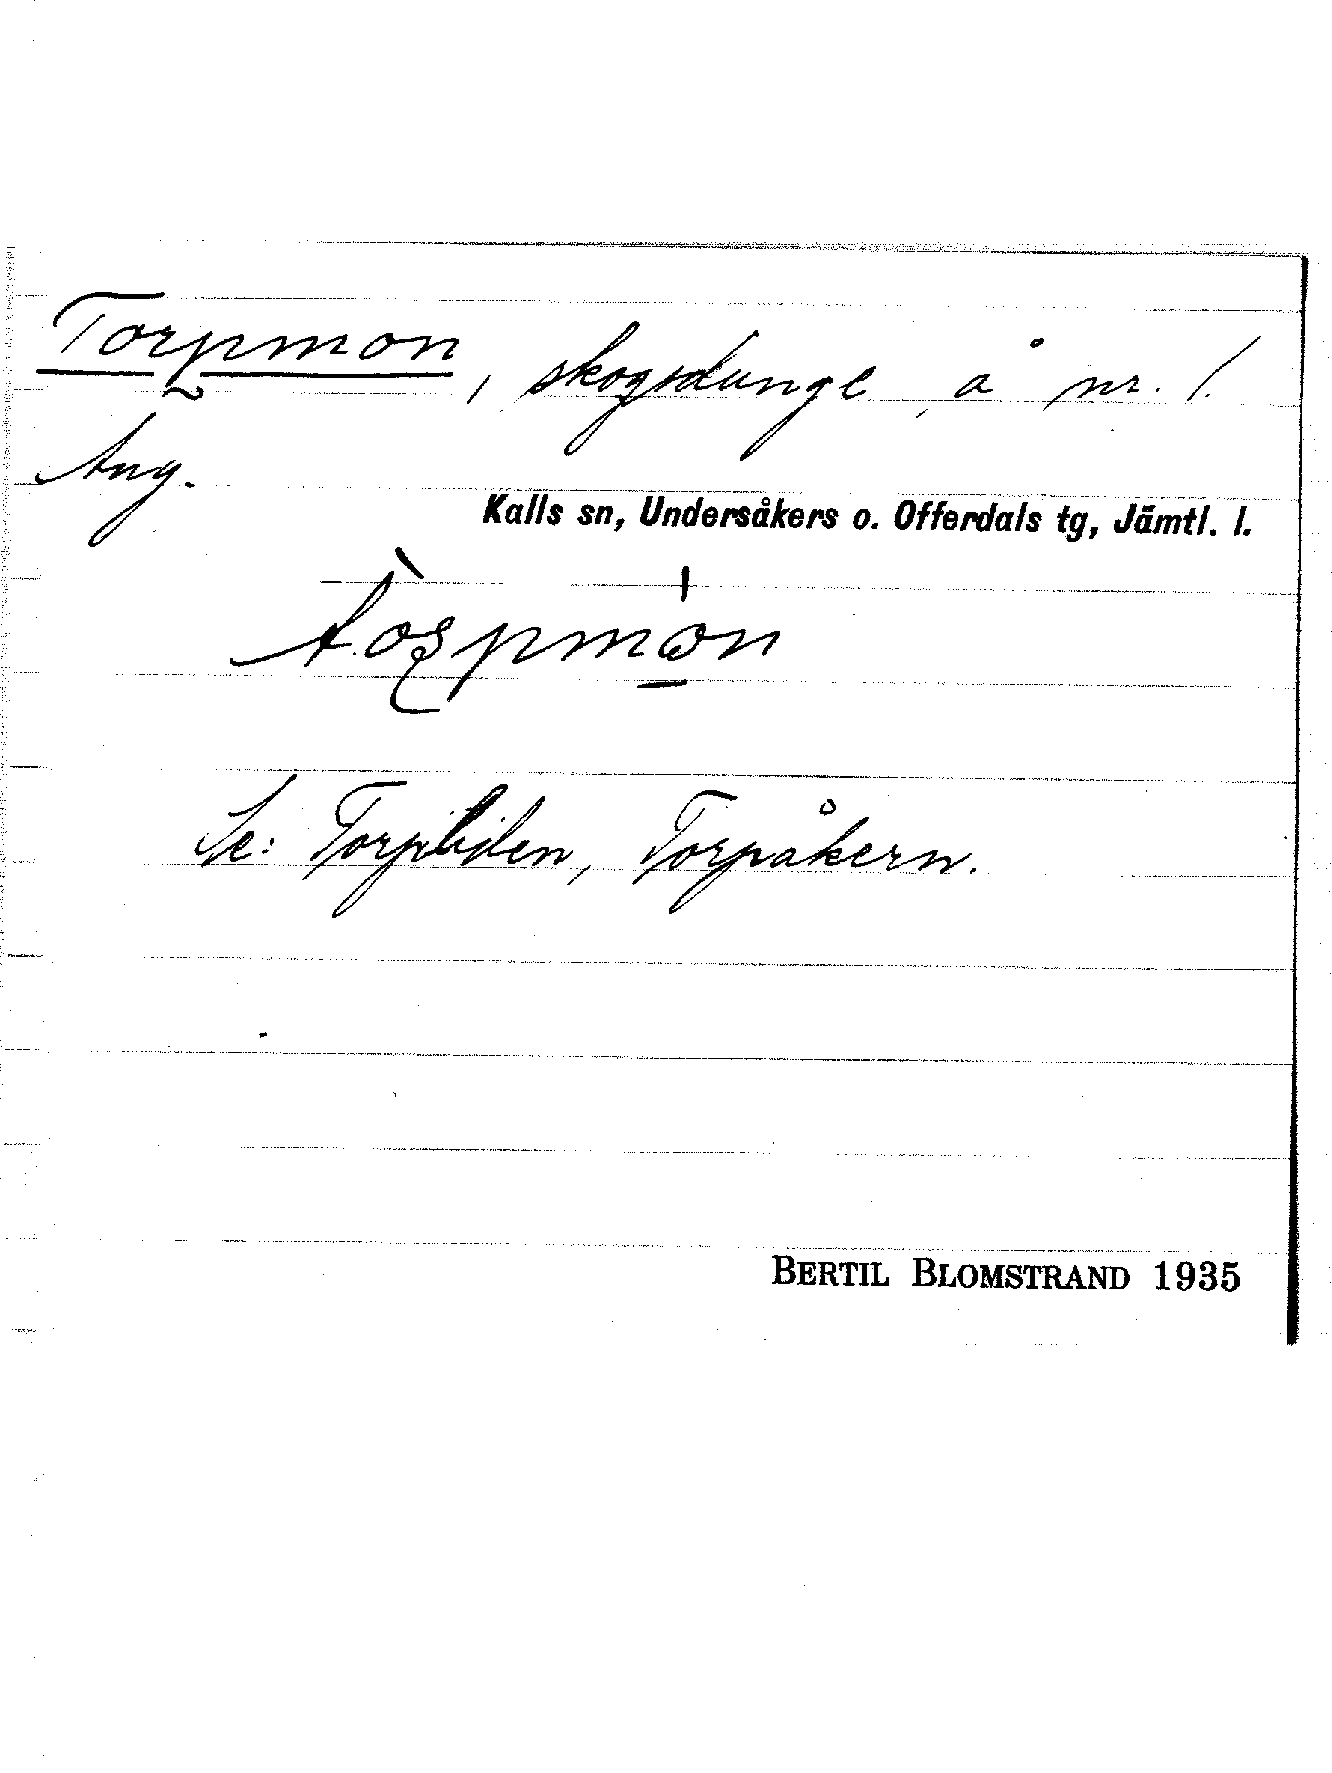 Torpmon, skogsdunge å nr. 1.
Äng.
Kalls sn, Undersåkers o. Offerdals tg, Jämtl. l.
Se: Torpliden, Torpåkern.
BERTIL BLOMSTRAND 1935